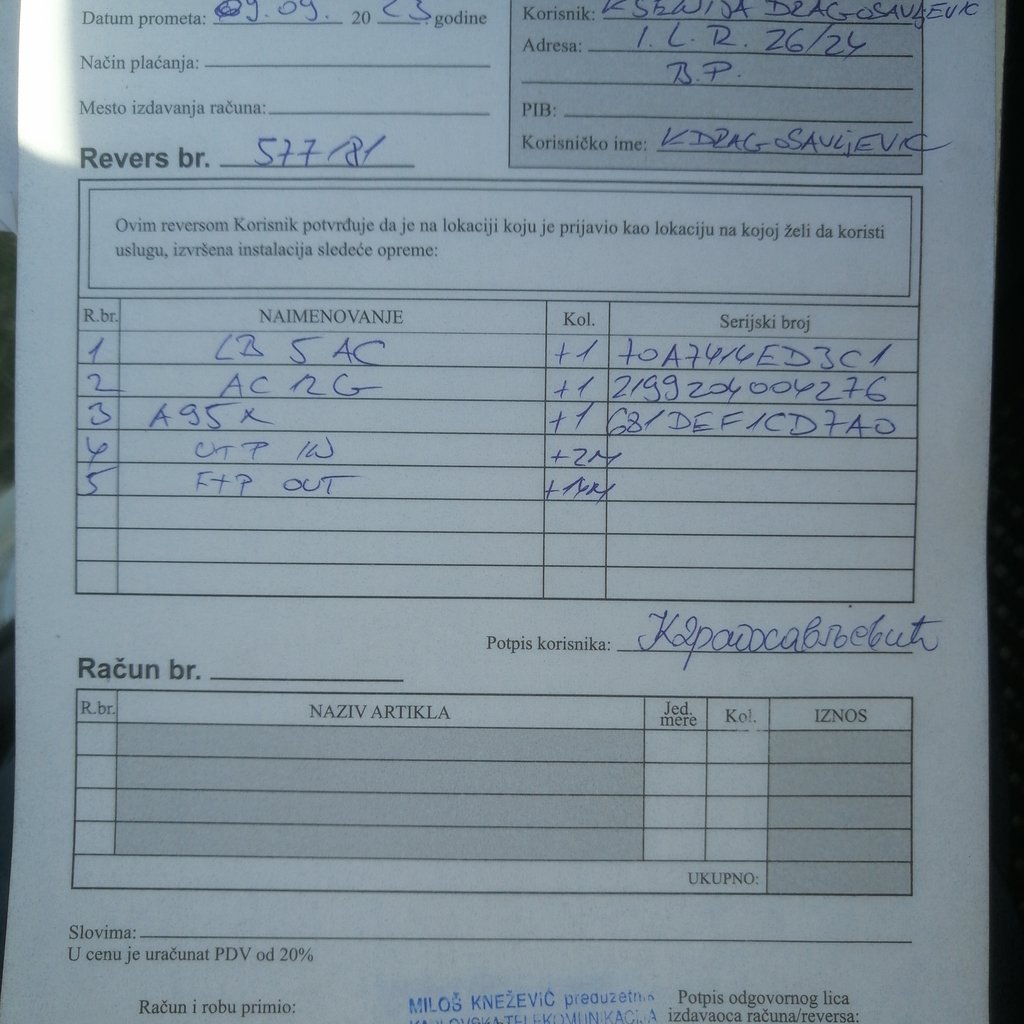 Datum prometa: 09.09. 20 23. godine
Način plaćanja:
Mesto izdavanja računa:
Revers br. 577/81
Korisnik: KSENIJA DRAGOSAVLJEVIC
Adresa: I. L. R. 26/24
B.P.
PIB:
Korisničko ime: KDRAGOSAVLJEVIC
Ovim reversom Korisnik potvrđuje da je na lokaciji koju je prijavio kao lokaciju na kojoj želi da koristi
uslugu, izvršena instalacija sledeće opreme:
R.br. NAIMENOVANJE Kol. Serijski broj
1 LB 5 AC +1 70A7414ED3C1
2 AC 12 G +1 2199204004276
3 A95X +1 681DEF1CD7A0
4 UTP IN +2M
5 FTP OUT +14M
Potpis korisnika: КДрагосављевић
Račun br.
R.br. NAZIV ARTIKLA Jed. mere Kol. IZNOS
UKUPNO:
Slovima:
U cenu je uračunat PDV od 20%
Račun i robu primio:
MILOŠ KNEŽEVIĆ preduzetnik
KARLOVSKA TELEKOMUNIKACIJA
Potpis odgovornog lica
izdavaoca računa/reversa: